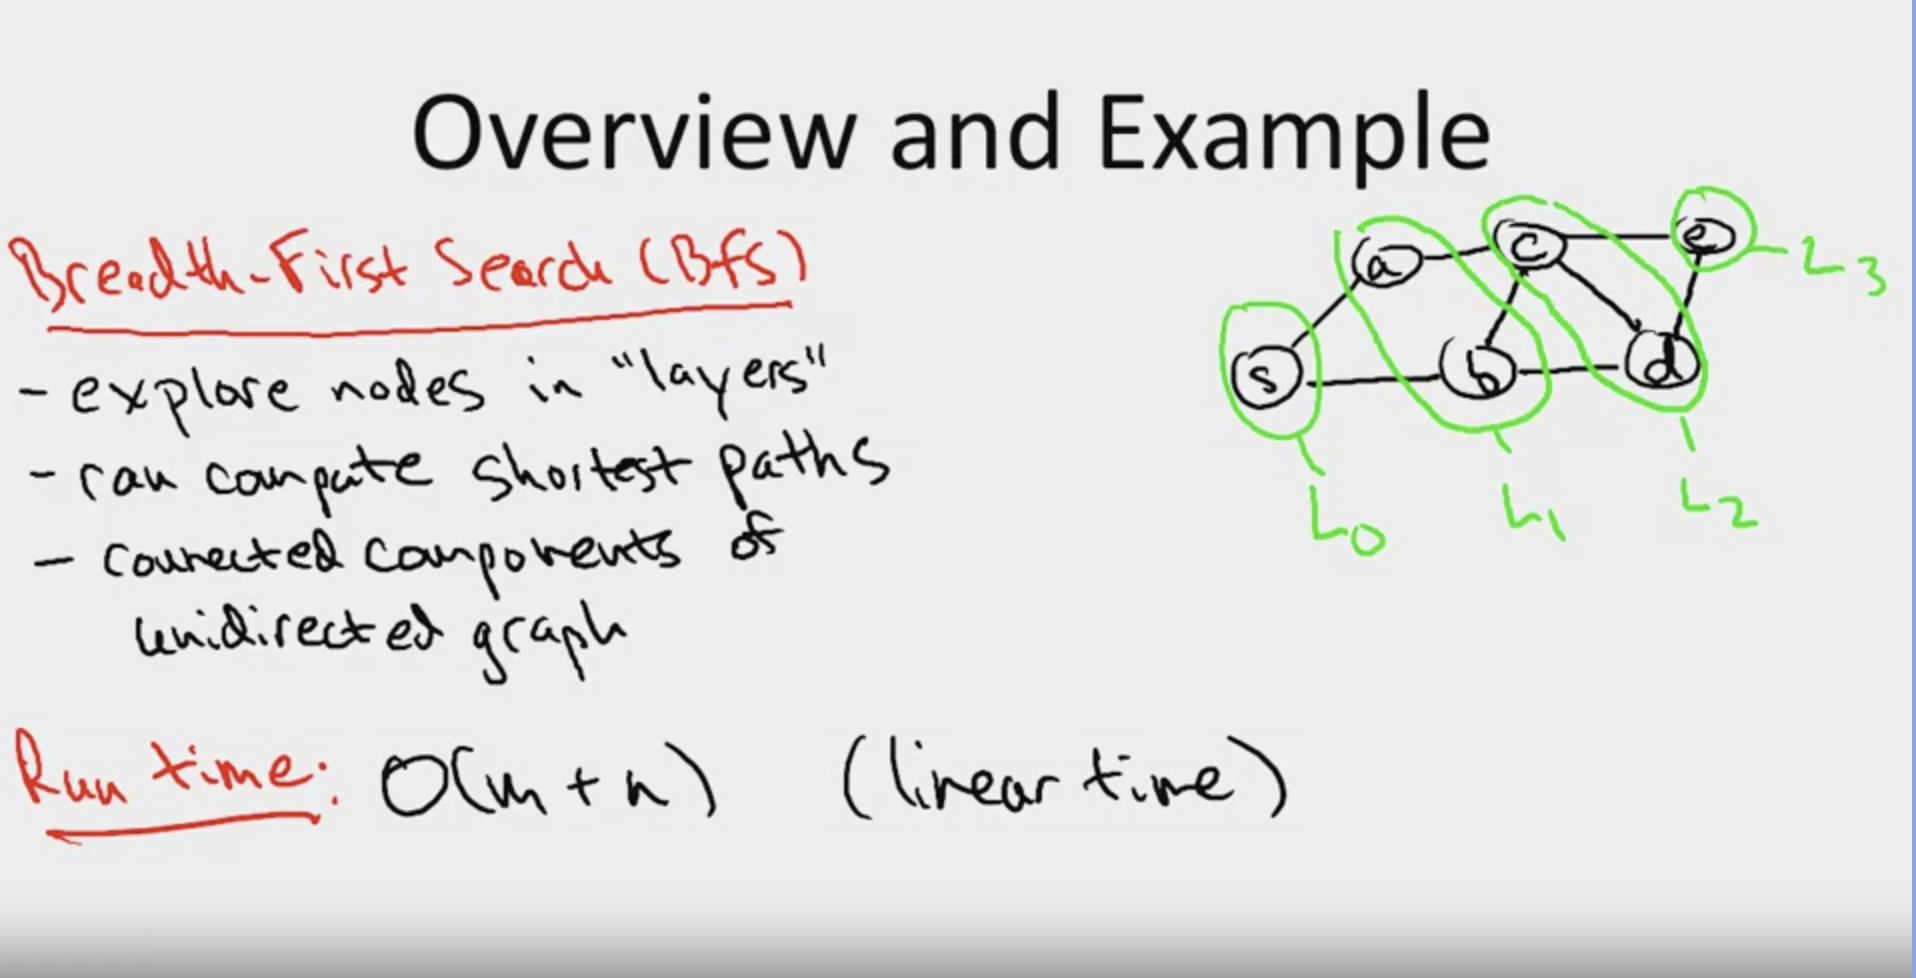 Overview and Example
Breadth-First Search (BFS)
- explore nodes in "layers"
- can compute shortest paths
- connected components of
unidirected graph
Run time: O(m+n) (linear time)
s
a
b
c
d
e
L0
L1
L2
L3